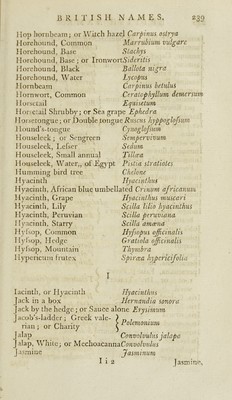 BRITISH NAMES. 239
Hop hornbeam; or Witch hazel Carpinus ostrya
Horehound, Common Marrubium vulgare
Horehound, Base Stachys
Horehound, Base; or Ironwort Sideritis
Horehound, Black Ballota nigra
Horehound, Water Lycopus
Hornbeam Carpinus betulus
Hornwort, Common Ceratophyllum demersum
Horsetail Equisetum
Horsetail Shrubby; or Sea grape Ephedra
Horsetongue; or Double tongue Ruscus hyppoglossum
Hound's-tongue Cynoglossum
Houseleek; or Sengreen Sempervivum
Houseleek, Lesser Sedum
Houseleek, Small annual Tillæa
Houseleek, Water, of Egypt Pistia stratiotes
Humming bird tree Chelone
Hyacinth Hyacinthus
Hyacinth, African blue umbellated Crinum africanum
Hyacinth, Grape Hyacinthus muscari
Hyacinth, Lily Scilla lilio hyacinthus
Hyacinth, Peruvian Scilla peruviana
Hyacinth, Starry Scilla amæna
Hyssop, Common Hyssopus officinalis
Hyssop, Hedge Gratiola officinalis
Hyssop, Mountain Thymbra
Hypericum frutex Spiræa hypericifolia
I
Jacinth, or Hyacinth Hyacinthus
Jack in a box Hernandia sonora
Jack by the hedge; or Sauce alone Erysimum
Jacob's-ladder; Greek vale-
rian; or Charity } Polemonium
Jalap Convolvulus jalapa
Jalap, White; or Mechoacanna Convolvulus
Jasmine Jasminum
I i 2 Jasmine,